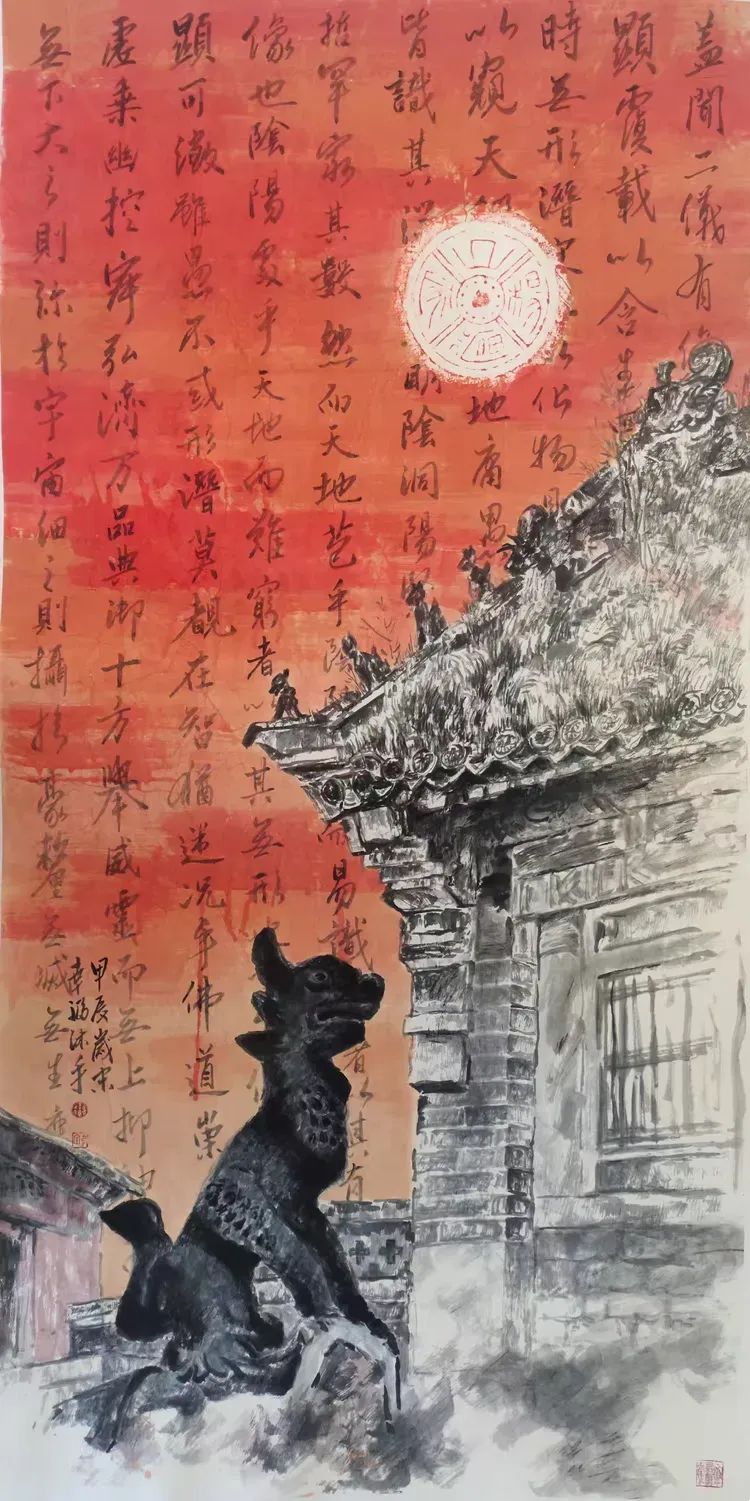 蓋聞二儀有
顯覆載以含生四
時無形潛 以化物是
以窺天 地庸愚
皆識其 明陰洞陽賢
哲罕窮其數然而天地苞乎陰 而易識者以其有
像也陰陽處乎天地而難窮者以其無形
顯可徵雖愚不惑形潛莫覩在智猶迷況乎佛道崇
虛乘幽控寂弘濟万品典御十方舉威靈而無上抑神
無下大之則弥於宇宙細之則攝於豪釐無滅無生歷
甲辰歲末
沐手